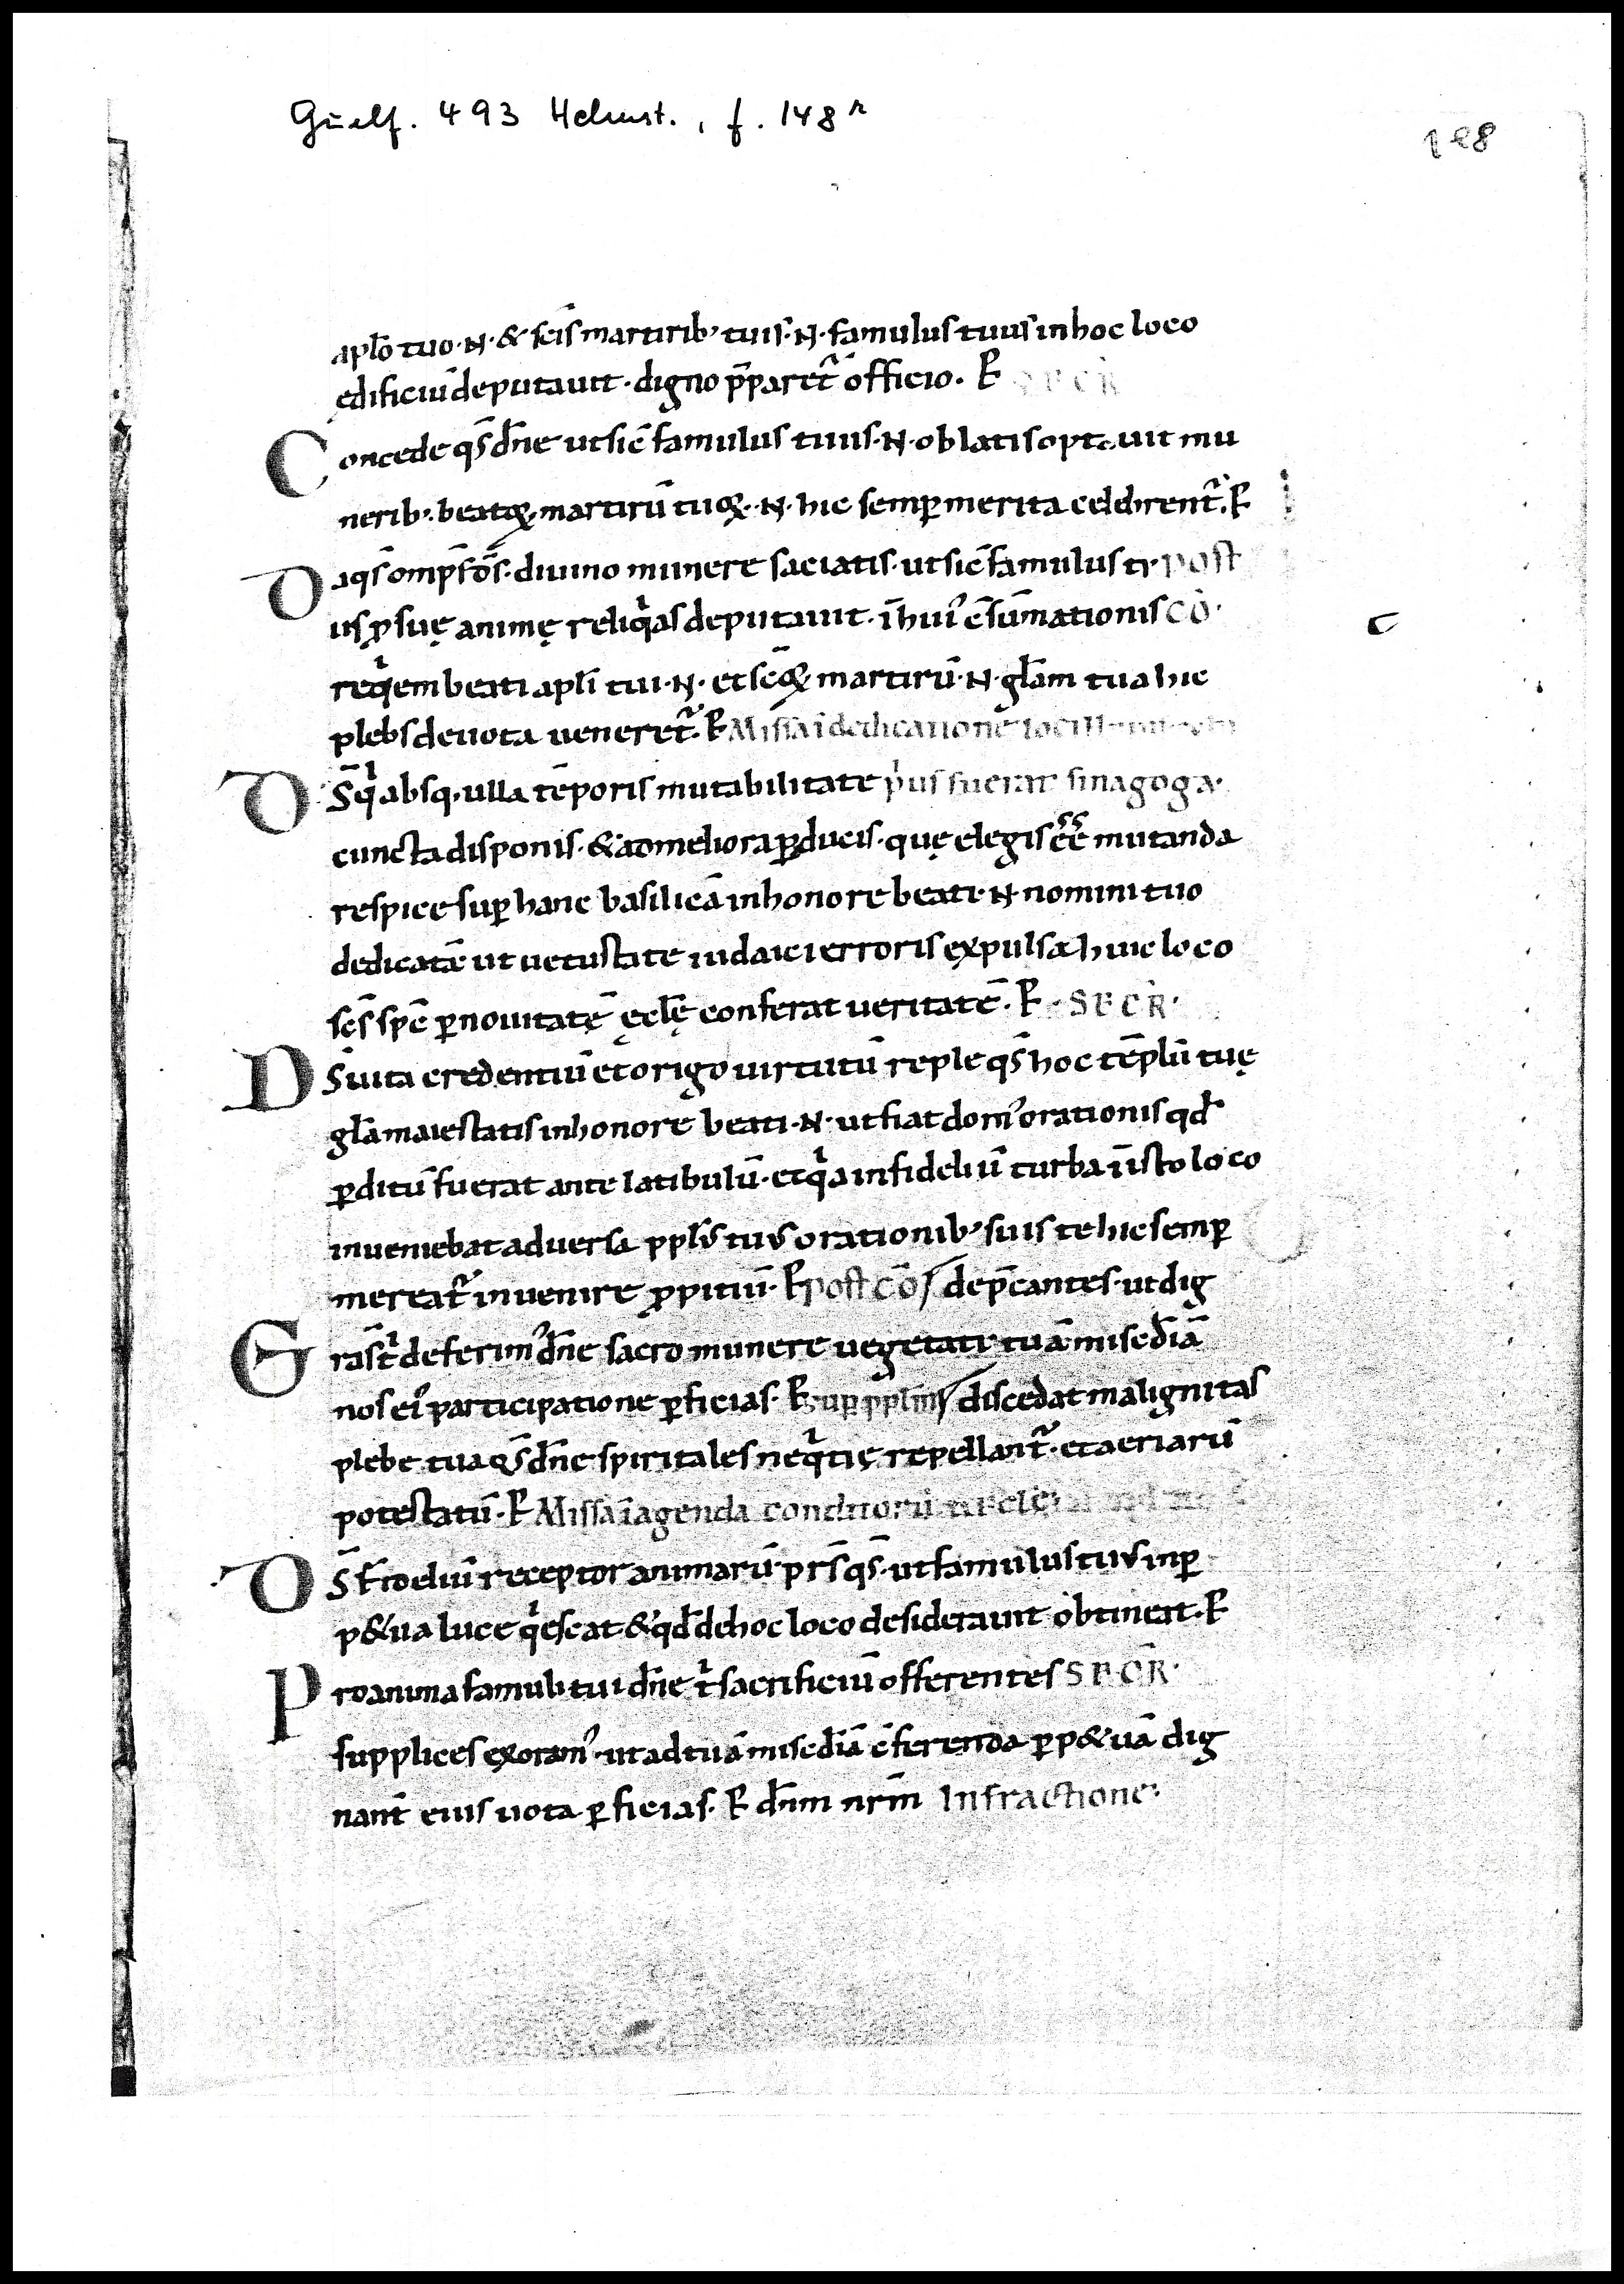 Guelf. 493 Helmst., f. 148r
148
apło tuo·N·& sc̄is martirib; tuis·N·famulus tuus in hoc loco
edificiū deputauit·digno p̄paret᷑ officio·R
Concede qs̄ dn̄e ut sic̄ famulus tuus·N·oblatis optauit mu
nerib;·beatoꝝ·martirū tuoꝝ·N·hic semꝑ merita celebrent᷑·R
Da qs̄ omps̄ ds̄·diuino munere saciatis·ut sic̄ famulus tu post
us ꝓ suę animę reliqͥas deputauit·ī huiꝰ c̄sūmationis CO·
reqͥem beati apłi tui·N·et sc̄oꝝ martirū·N·głam tua hic
plebs deuota ueneret᷑·R Missa ī dedicatione loci
DS̄ qͥ absq; ulla tēporis mutabilitate pͥus fuerat sinagoga·
cuncta disponis·& ad meliora ꝑducis·quę elegis ēē mutanda
respice suꝑ hanc basilicā in honore beati·N·nomini tuo
dedicatā ut uetustate iudaici erroris expulsa huic loco
sc̄s sp̄c ꝑ nouitatē ęcłę conferat ueritatē·R·SECR·
DS̄ uita credentiū et origo uirtutū reple qs̄ hoc tēplū tuę
głā maiestatis in honore beati·N·ut fiat domꝰ orationis qđ
ꝑditū fuerat ante latibulū·et qͥa infideliū turba ī isto loco
inueniebat aduersa ppłs tus orationib; suis te hic semꝑ
mereat᷑ inuenire ꝓpitiū·R post cō / dep̄cantes·ut dig
Gras tͥ deferimꝰ dn̄e sacro munere uegetati tuā misedīā
nos eiꝰ participatione ꝑficias·R suꝑ ppłm / discedat malignitas
plebe tua qs̄ dn̄e spiritales neqͥtię repellant᷑·et aeriarū
potestatū·R Missa ī agenda conditorū
DS̄ fideliū receptor animarū·prs̄ qs̄·ut famulus tus in ꝑ
p&ua luce qͥescat & qđ de hoc loco desiderauit obtineat·R
Pro anima famuli tui dn̄e tͥ sacrificiū offerentes SECR·
supplices exoramꝰ·ut ad tuā misedīā c̄ferenda ꝑp&uā dig
nant᷑ eius uota ꝑficias·R dn̄m nr̄m Infractione·